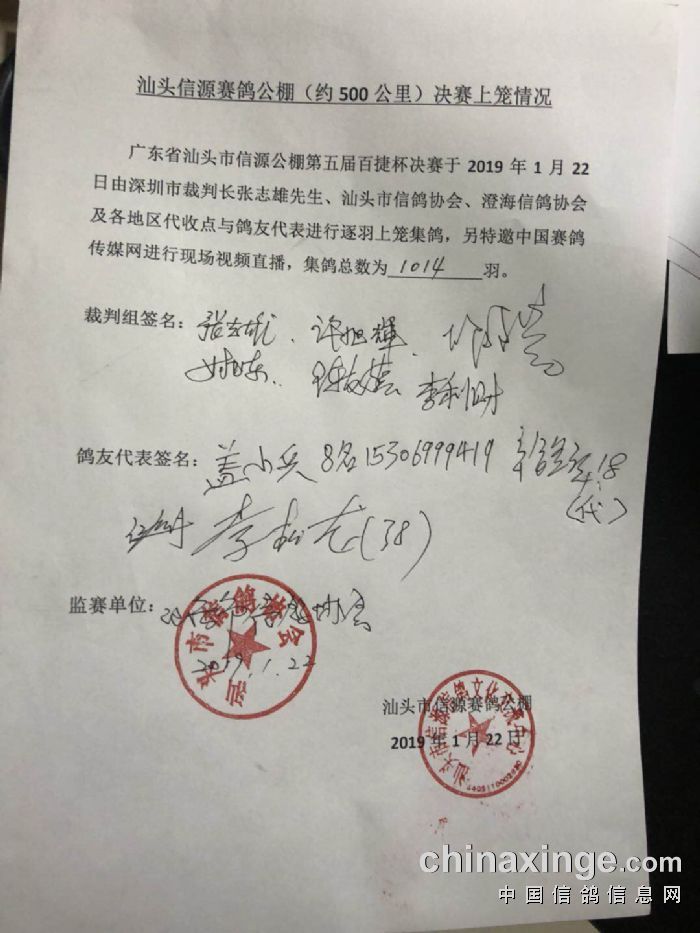 汕头信源赛鸽公棚（约500公里）决赛上笼情况
广东省汕头市信源公棚第五届百捷杯决赛于 2019 年 1 月 22
日由深圳市裁判长张志雄先生、汕头市信鸽协会、澄海信鸽协会
及各地区代收点与鸽友代表进行逐羽上笼集鸽，另特邀中国赛鸽
传媒网进行现场视频直播，集鸽总数为 1014 羽。
裁判组签名：张志雄、许旭辉、
李利财
鸽友代表签名：盖小兵 8名 15306999419
(代)
李松龙(38)
监赛单位：
2019.1.22
汕头市信源赛鸽公棚
2019 年 1 月 22 日
chinaxinge.com
中国信鸽信息网